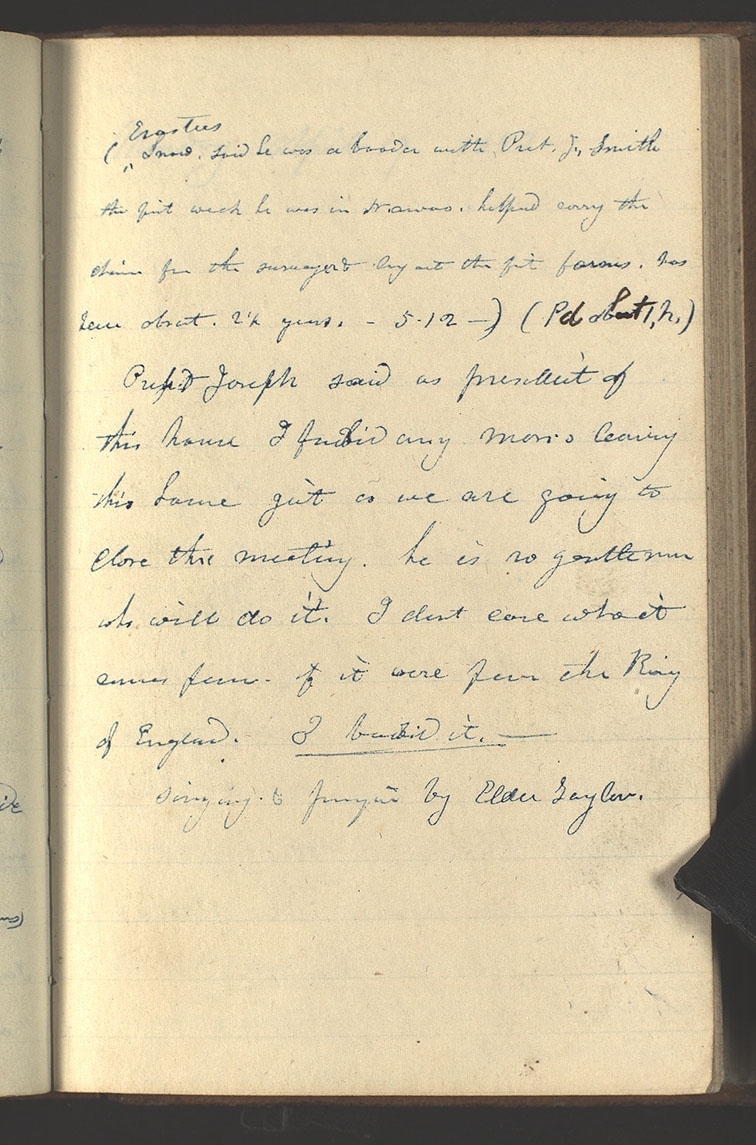 Erastus
( ‸ Snow. said he was a boader with Pret. J, Smith
the fi[r]st week he was in Nauvoo. helped carry the
chain for the surveyor lay out the fi[r]st farms. has
been about. 2½ years. - 5.12 —) (Pd about 1, h.)
Prest Joseph said as presedent of
this house I forbid any mans leaving
this house just as we are going to
close this meeting. he is no gentleman
who will do it. I dont care who it
comes from. If it were from the King
of England. I forbid it. —
singing. & prayer by Elder Taylor.